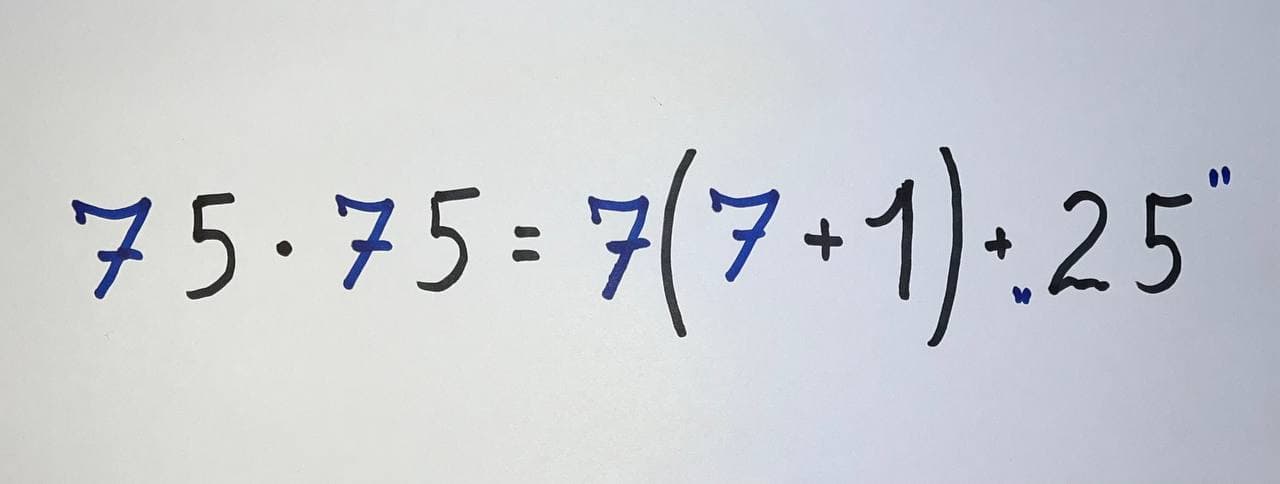 75·75=7(7+1)+„25"